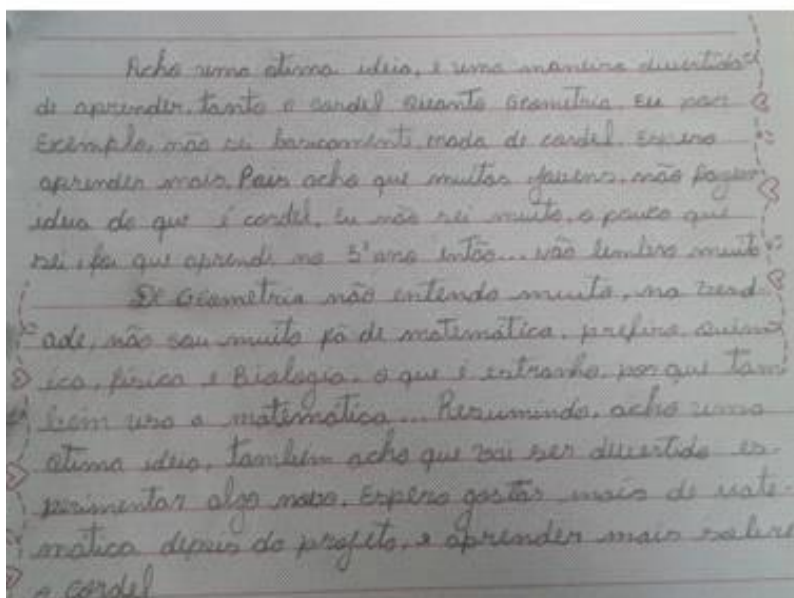 Acho uma otima ideia, e uma maneira divertida
de aprender, tanto o cordel quanto Geometria. Eu por
Exemplo, não sei basicamente nada de cordel. Espero
aprender mais. Pois acho que muitos jovens, não fazem
ideia do que é cordel. Eu não sei muito, o pouco que
sei, foi que aprendi no 5º ano então... não lembro muito
De Geometria não entendo muito, na verd
ade, não sou muito fã de matemática, prefiro, quim
ica, física e Biologia. o que é estranho, por que tam
bém usa a matemática... Resumindo, acho uma
otima ideia, também acho que vai ser divertido es-
perimentar algo novo. Espero gostar mais de mate-
mática depois do projeto, e aprender mais sobre
o cordel